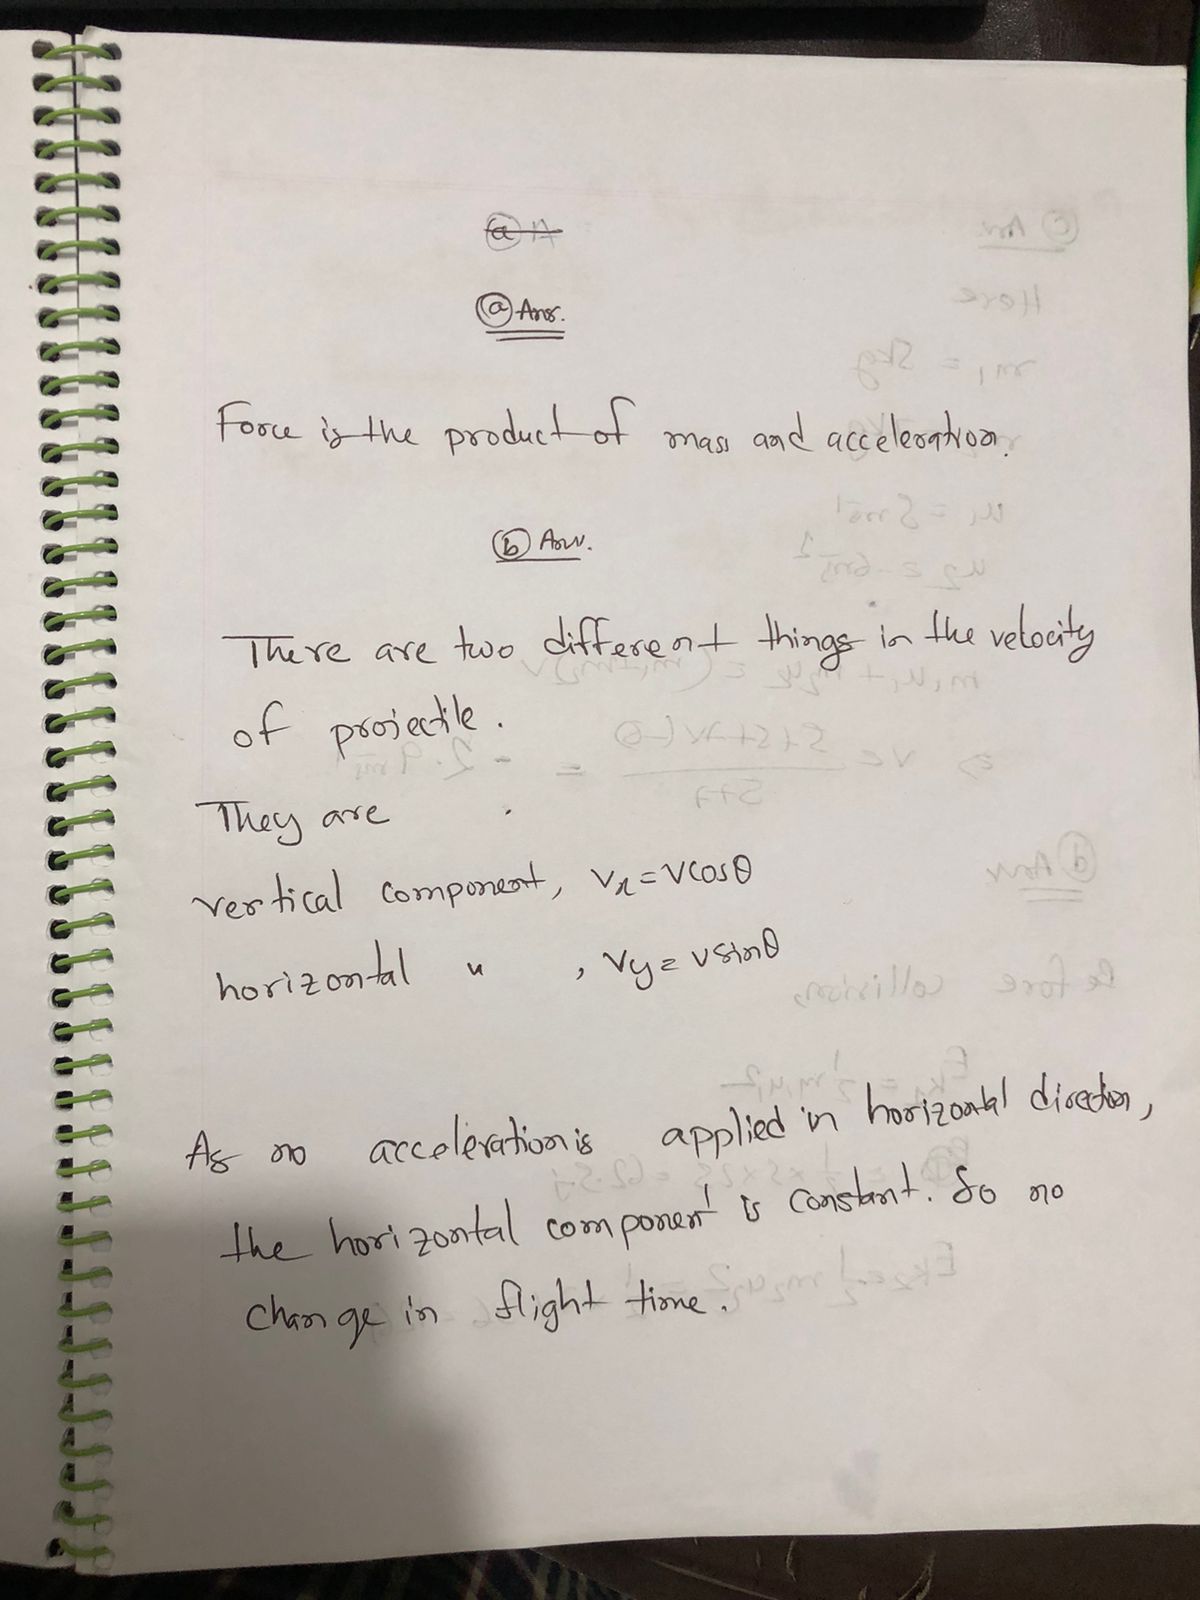 ⓐ A
ⓐ Ans.
Force is the product of mass and acceleration.
ⓑ Ans.
There are two different things in the velocity
of projectile.
They are
vertical component, Vx = Vcosθ
horizontal " , Vy = Vsinθ
As no acceleration is applied in horizontal direction,
the horizontal component is constant. So no
change in flight time.